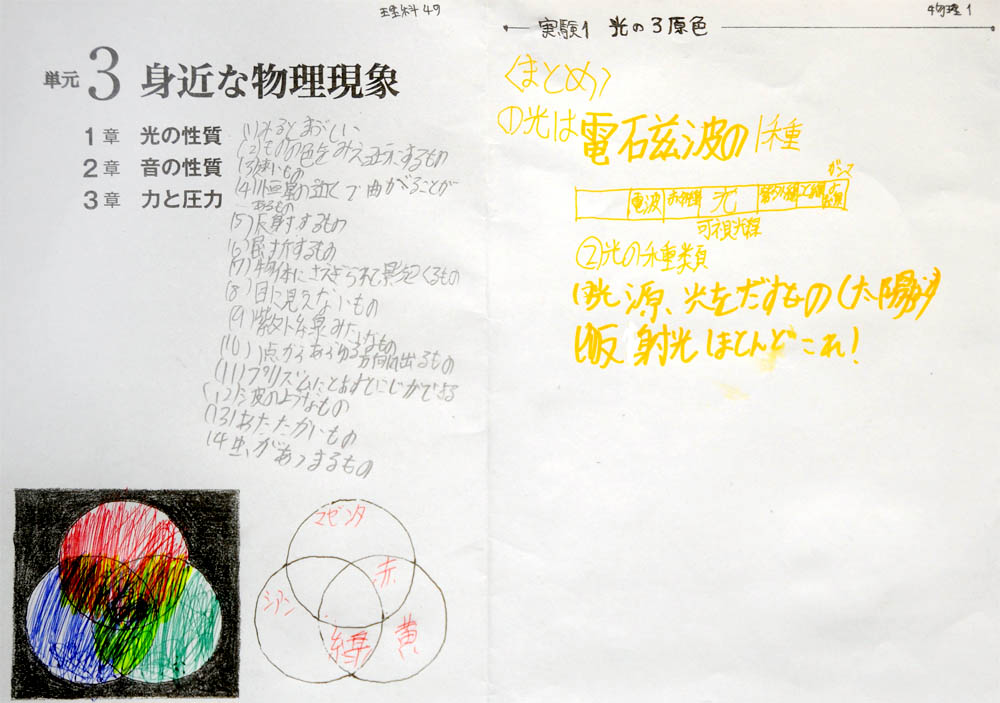 理科49
単元3 身近な物理現象
1章 光の性質
2章 音の性質
3章 力と圧力
(1)みるとまぶしい
(2)ものの色をみえるようにするもの
(3)速いもの
(4)恒星の近くで曲がることが
あるもの
(5)反射するもの
(6)屈折するもの
(7)物体にさえぎられて影をつくるもの
(8)目に見えないもの
(9)紫外線みたいなもの
(10)1点からあらゆる方向に出るもの
(11)プリズムにとおすとにじができる
(12)波のようなもの
(13)あたたかいもの
(14虫があつまるもの
マゼンタ
赤
シアン
緑
黄
物理1
実験1 光の3原色
〈まとめ〉
①光は電磁波の1種
電波 赤外線 光 紫外線
可視光線
②光の種類
光源、光をだすもの(太陽
反射光ほとんどこれ!